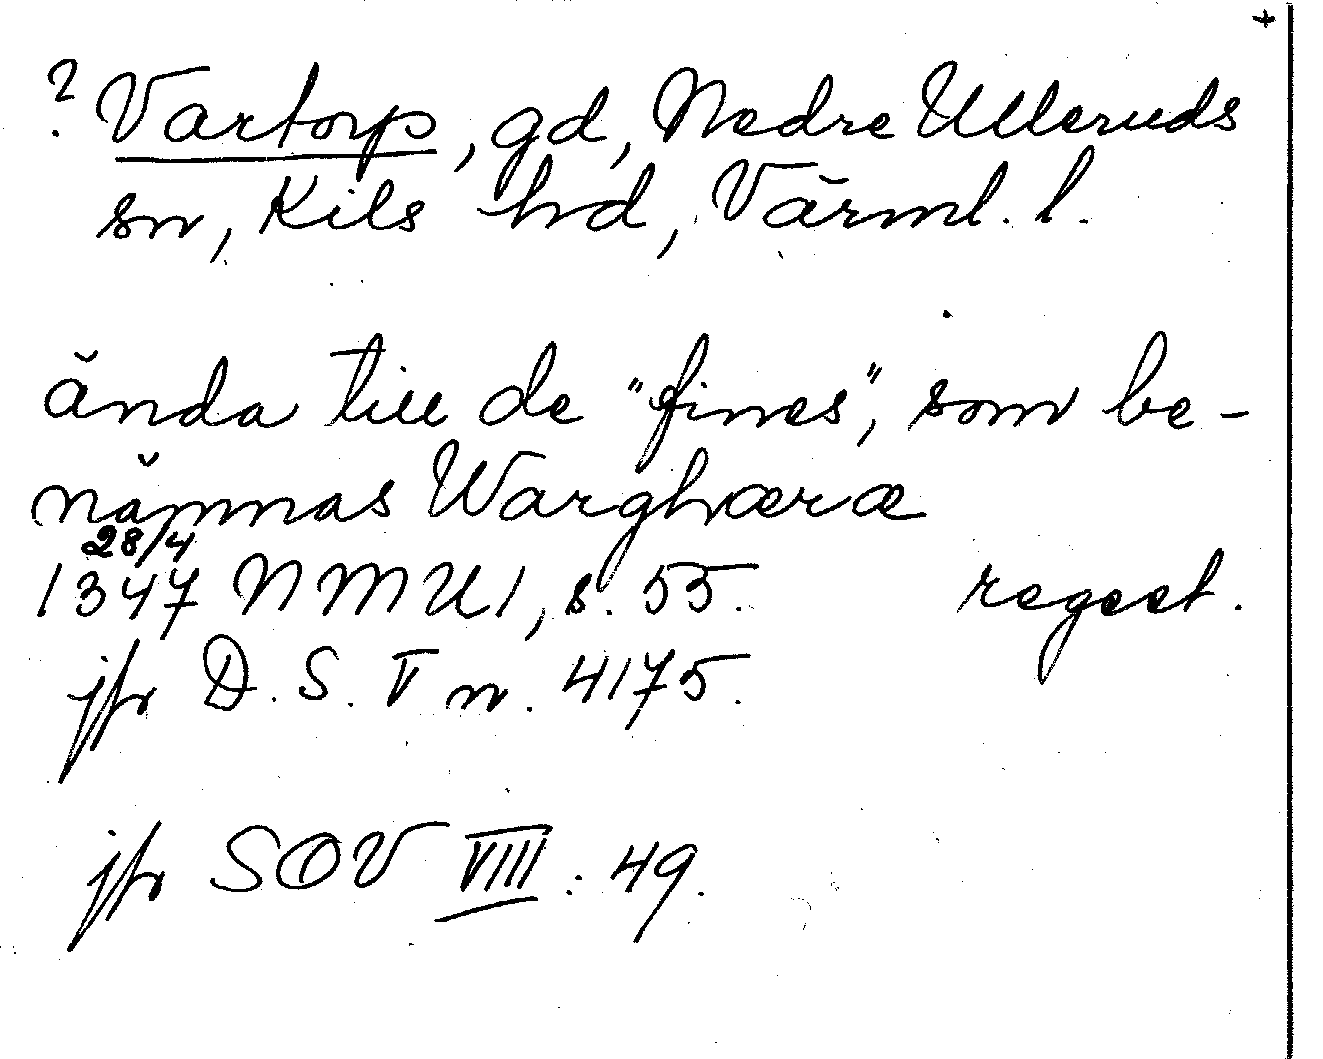 +
? Vartorp, gd, Nedre Ulleruds
sn, Kils hd, Värml. l.
ända till de "fines", som be-
nämnas Warghæræ
28/4
1347 NMU 1, s. 55. regest.
jfr D. S. V n. 4175.
jfr SOV VIII: 49.